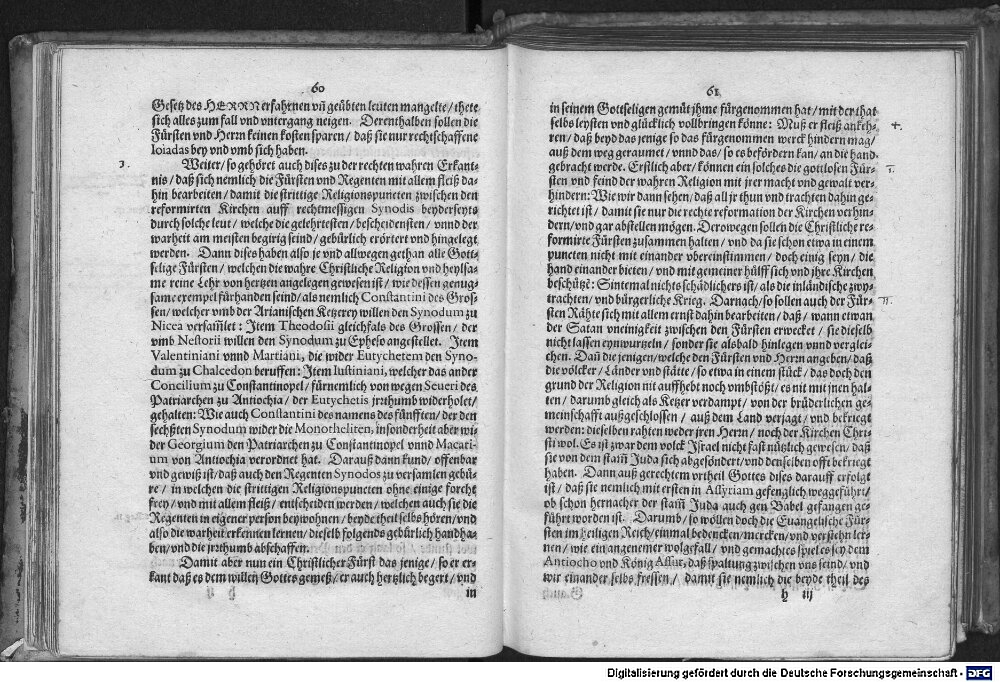 60
Gesetz des HERRN erfahrnen vñ geübten leuten mangelte / thete
sich alles zum fall vnd vntergang neigen. Derenthalben sollen die
Fürsten vnd Herrn keinen kosten sparen / daß sie nur rechtschaffene
Ioiadas bey vnd vmb sich haben.
3.
Weiter / so gehöret auch dises zu der rechten wahren Erkant-
nis / daß sich nemlich die Fürsten vnd Regenten mit allem fleiß da-
hin bearbeiten / damit die strittige Religionspuncten zwischen den
reformirten Kirchen auff rechtmessigen Synodis beyderseyts
durch solche leut / welche die gelehrtesten / bescheidensten / vnnd der
warheit am meisten begirig seind / gebürlich erörtert vnd hingelegt
werden. Dann dises haben also je vnd allwegen gethan alle Gott-
selige Fürsten / welchen die wahre Christliche Religion vnd heylsa-
me reine Lehr von hertzen angelegen gewesen ist / wie dessen genug-
same exempel fürhanden seind / als nemlich Constantini des Gros-
sen / welcher vmb der Arianischen Ketzerey willen den Synodum zu
Nicea versamlet: Item Theodosii gleichfals des Grossen / der
vmb Nestorii willen den Synodum zu Epheso angestellet. Item
Valentiniani vnnd Martiani, die wider Eutychetem den Syno-
dum zu Chalcedon beruffen: Item Iustiniani, welcher das ander
Concilium zu Constantinopel / fürnemlich von wegen Seueri des
Patriarchen zu Antiochia / der Eutychetis jrthumb widerholet /
gehalten: Wie auch Constantini des namens des fünfften / der den
sechßten Synodum wider die Monotheliten, insonderheit aber wi-
der Georgium den Patriarchen zu Constantinopel vnnd Macari-
um von Antiochia verordnet hat. Darauß dann kund / offenbar
vnd gewiß ist / daß auch den Regenten Synodos zu versamlen gebü-
re / in welchen die strittigen Religionspuncten ohne einige forcht
frey / vnd mit allem fleiß / entscheiden werden / welchen auch sie die
Regenten in eigener person beywohnen / beyde theil selbs hören / vnd
also die warheit erkennen lernen / dieselb folgends gebürlich handha-
ben / vnd die jrrthumb abschaffen.
Damit aber nun ein Christlicher Fürst das jenige / so er er-
kant daß es dem willen Gottes gemeß / er auch hertzlich begert / vnd
in
61
in seinem Gottseligen gemüt jhme fürgenommen hat / mit der that
selbs leysten vnd glücklich vollbringen könne: Muß er fleiß ankeh-
4.
ren / daß beyd das jenige so das fürgenommen werck hindern mag /
auß dem weg geraumet / vnnd das / so es befördern kan / an die hand
gebracht werde. Erstlich aber / können ein solches die gottlosen Für-
I.
sten vnd feind der wahren Religion mit jrer macht vnd gewalt ver-
hindern: Wie wir dann sehen / daß all jr thun vnd trachten dahin ge-
richtet ist / damit sie nur die rechte reformation der Kirchen verhin-
dern / vnd gar abstellen mögen. Derowegen sollen die Christliche re-
formirte Fürsten zusammen halten / vnd da sie schon etwa in einem
puncten nicht mit einander vbereinstimmen / doch einig seyn / die
hand einander bieten / vnd mit gemeiner hülff sich vnd jhre Kirchen
beschützẽ: Sintemal nichts schädlichers ist / als die inländische zwy-
trachten / vnd bürgerliche Krieg. Darnach / so sollen auch der Für-
II.
sten Rähte sich mit allem ernst dahin bearbeiten / daß / wann etwan
der Satan vneinigkeit zwischen den Fürsten erwecket / sie dieselb
nicht lassen eynwurzeln / sonder sie alsbald hinlegen vnnd verglei-
chen. Dañ die jenigen / welche den Fürsten vnd Herrn angeben / daß
die völcker / Länder vnd stätte / so etwa in einem stück / das doch den
grund der Religion nit auffhebt noch vmbstößt / es nit mit jnen hal-
ten / darumb gleich als Ketzer verdampt / von der brüderlichen ge-
meinschafft außgeschlossen / auß dem Land verjagt / vnd bekriegt
werden: dieselben rahten weder jren Herrn / noch der Kirchen Chri-
sti wol. Es ist zwar dem volck Israel nicht fast nützlich gewesen / daß
sie von dem stam̃ Juda sich abgesöndert / vnd denselben offt bekriegt
haben. Dann auß gerechtem vrtheil Gottes dises darauff erfolgt
ist / daß sie nemlich mit ersten in Assyriam gefenglich weggeführt /
ob schon hernacher der stam̃ Juda auch gen Babel gefangen ge-
führt worden ist. Darumb / so wöllen doch die Euangelische Für-
sten im heiligen Reich / einmal bedencken / mercken / vnd verstehn ler-
nen / wie ein angenemer wolgefall / vnd gemachtes spiel es sey dem
Antiocho vnd König Assur, daß spaltung zwischen vns seind / vnd
wir einander selbs fressen / damit sie nemlich die beyde theil des
h iij
Digitalisierung gefördert durch die Deutsche Forschungsgemeinschaft - DFG